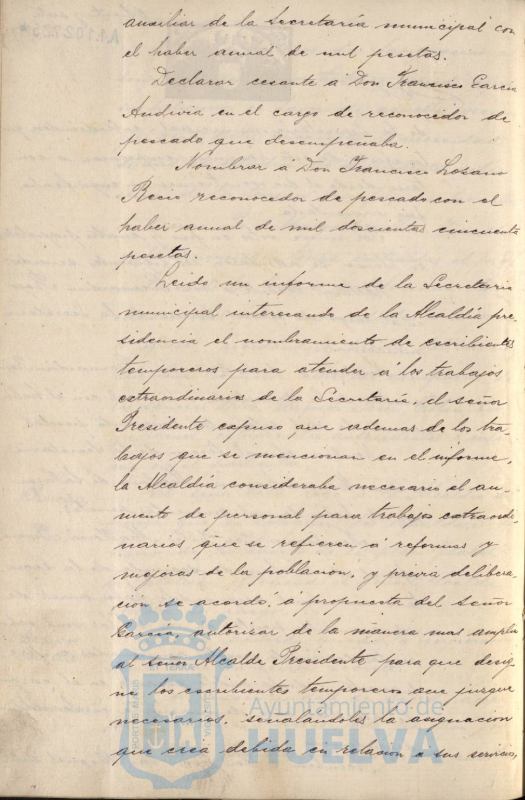 auxiliar de la Secretaría municipal con
el haber anual de mil pesetas.
Declarar cesante á Don Francisco García
Andivia en el cargo de reconocedor de
pescado que desempeñaba.
Nombrar á Don Francisco Lozano
Recio reconocedor de pescado con el
haber anual de mil doscientas cincuenta
pesetas.
Leido un informe de la Secretaría
municipal interesando de la Alcaldía pre-
sidencia el nombramiento de escribientes
temporeros para atender á los trabajos
extraordinarios de la Secretaría, el señor
Presidente expuso que ademas de los tra-
bajos que se mencionan en el informe,
la Alcaldía consideraba necesario el au-
mento de personal para trabajos extraordi-
narios que se refieren á reformas y
mejoras de la poblacion, y previa delibera-
cion se acordó, á propuesta del señor
García, autorizar de la manera mas amplia
al señor Alcalde Presidente para que desig-
ne los escribientes temporeros que juzgue
necesarios, señalándoles la asignacion
que crea debida en relacion á sus servicios,
Ayuntamiento de
HUELVA